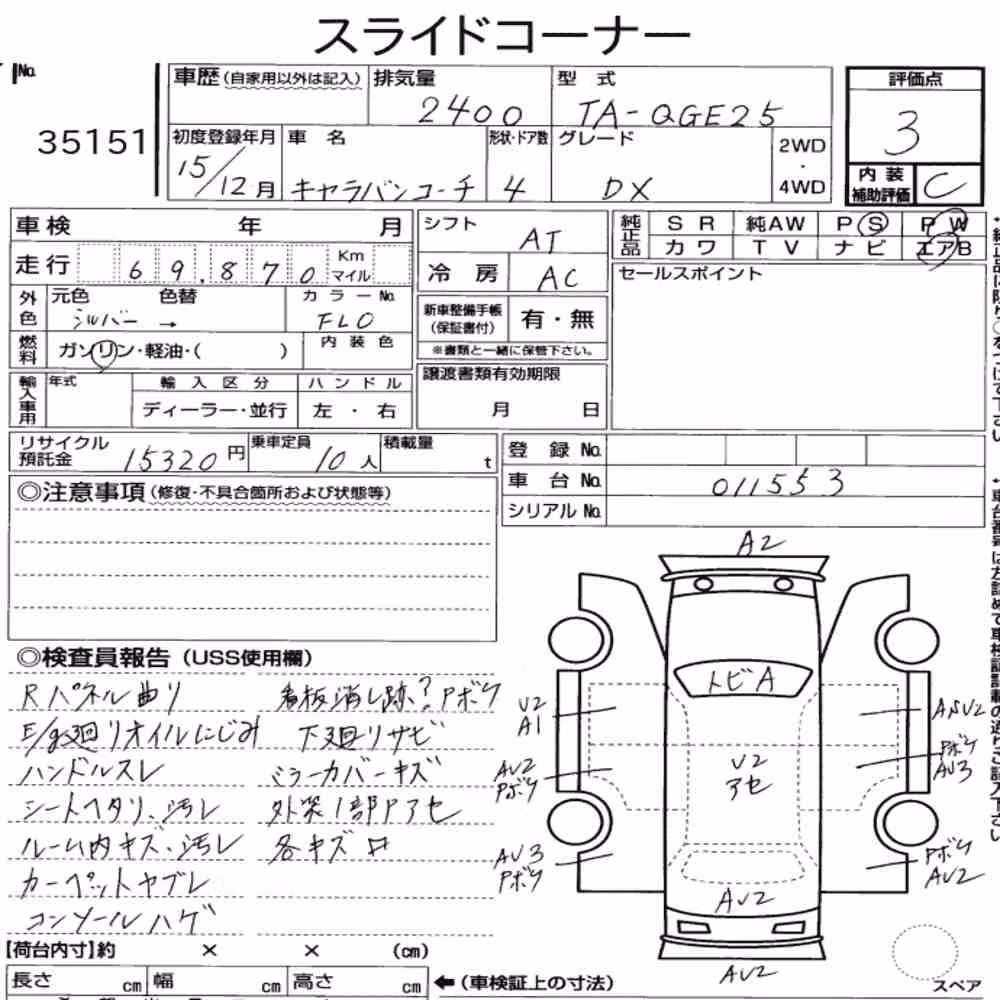 スライドコーナー
No.
35151
車歴 (自家用以外は記入)
排気量
2400
型 式
TA-QGE25
評価点
3
内装補助評価
C
初度登録年月
15/12月
車 名
キャラバンコーチ
形状・ドア数
4
グレード
DX
2WD
・
4WD
車検 年 月
走行 69.870 Km マイル
外色
元色 色替
シルバー →
カラーNo.
FL0
燃料
ガソリン・軽油・( )
内装色
輸入車用
年式
輸入区分
ディーラー・並行
ハンドル
左 ・ 右
シフト
AT
冷 房
AC
新車整備手帳
(保証書付)
有・無
※書類と一緒に保管下さい。
譲渡書類有効期限
月 日
純正品
SR 純AW PS PW
カワ TV ナビ エアB
セールスポイント
リサイクル預託金
15320円
乗車定員
10人
積載量
t
登 録 No.
車 台 No.
011553
シリアル No.
◎注意事項 (修復・不具合箇所および状態等)
◎検査員報告 (USS使用欄)
Rパネル曲り
E/g廻リオイルにじみ
ハンドルスレ
シートヘタリ、汚レ
ルーム内キズ、汚レ
カーペットヤブレ
コンソールハゲ
看板消し跡?Pボケ
下廻リサビ
ミラーカバーキズ
外装1部Pアセ
各キズ
A2
トビA
U2
A1
AU2
Pボケ
AU3
Pボケ
U2
アセ
Pボケ
AU3
Pボケ
AU2
AU2
AU2
スペア
【荷台内寸】約 × × (cm)
長さ cm 幅 cm 高さ cm
←(車検証上の寸法)